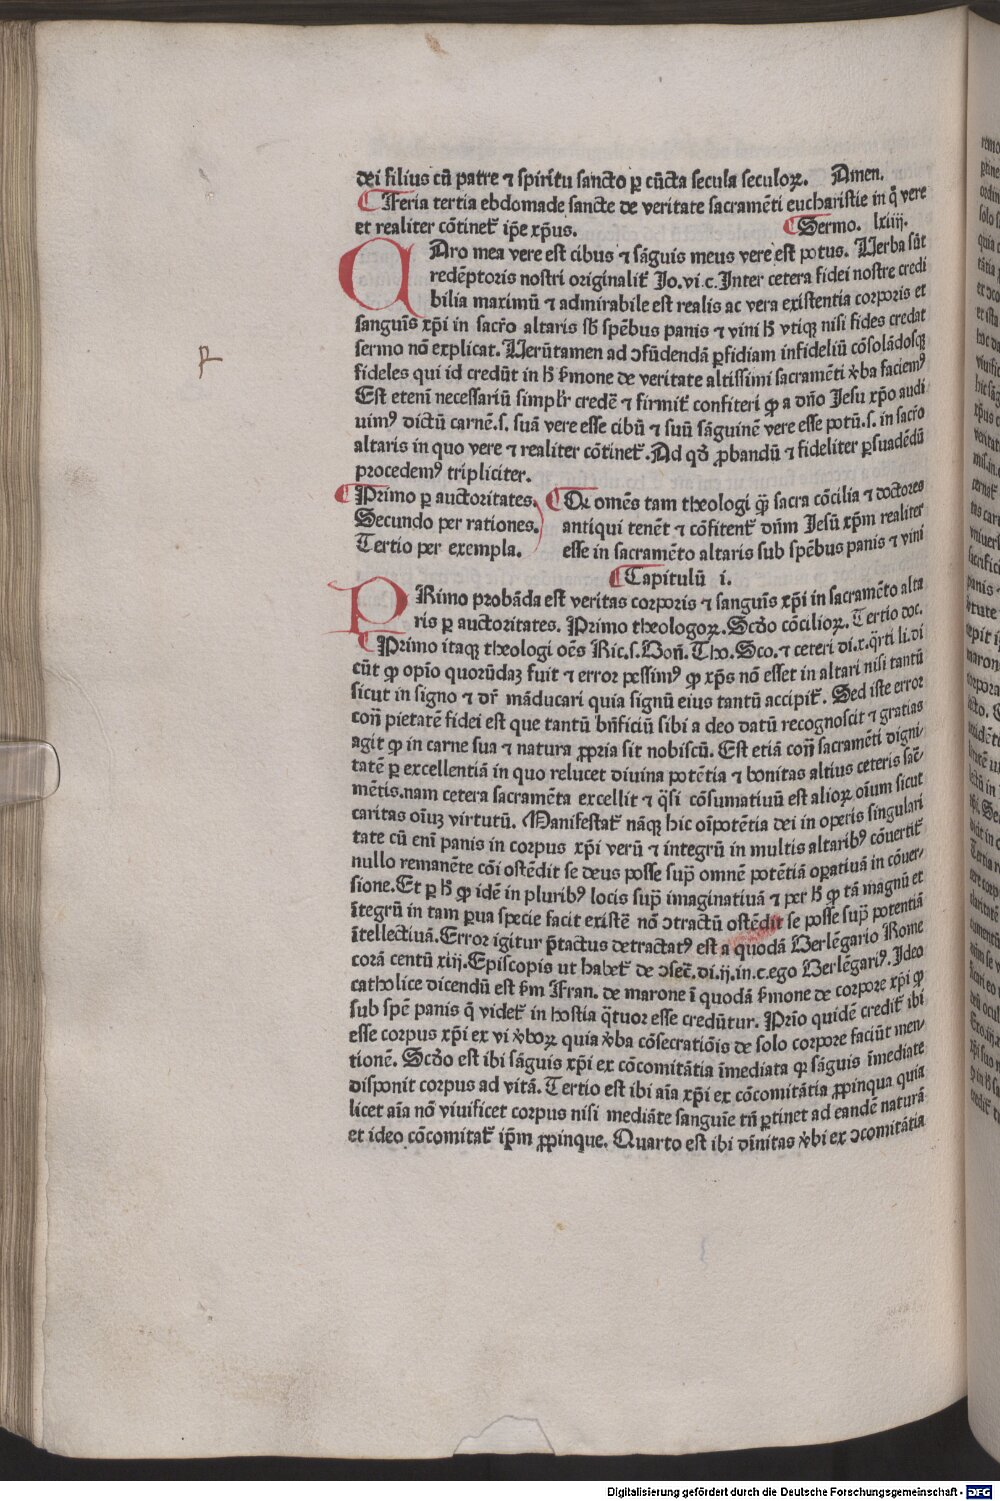 dei filius cū patre ⁊ spiritu sancto ꝑ cūcta secula seculoꝝ. Amen.
Feria tertia ebdomade sancte de veritate sacramēti eucharistie in q̊ vere
et realiter cōtinet᷑ ip̄e xp̄us. Sermo. lxiiij.
CAro mea vere est cibus ⁊ sāguis meus vere est potus. Uerba sūt
redēptoris nostri originalit᷑ Jo. vi. c. Inter cetera fidei nostre credi
bilia maximū ⁊ admirabile est realis ac vera existentia corporis et
sanguīs xp̄i in sacr̄o altaris sb̄ spēbus panis ⁊ vini hꝰ vtiqꝫ nisi fides credat
sermo nō explicat. Uerūtamen ad ↄfūdendā ꝑfidiam infideliū cōsolādosqꝫ
fideles qui id credūt in hꝰ ẜmone de veritate altissimi sacramēti v̆ba faciemꝰ
Est etenī necessariū simplr̄ credē ⁊ firmit᷑ confiteri ꝙ a dn̄o Jesu xp̄o audi
uimꝰ dictū carnē. s. suā vere esse cibū ⁊ suū sāguinē vere esse potū. s. in sacr̄o
altaris in quo vere ⁊ realiter cōtinet᷑. Ad qd̄ ꝓbandū ⁊ fideliter ꝑsuadēdū
procedemꝰ tripliciter.
Primo ꝑ auctoritates.
Secundo per rationes.
Tertio per exempla.
Or omēs tam theologi q̄ꝫ sacra cōcilia ⁊ doctores
antiqui tenēt ⁊ cōfitent᷑ dn̄m Jesū xp̄m realiter
esse in sacramēto altaris sub spēbus panis ⁊ vini
Capitulū i.
PRimo probāda est veritas corporis ⁊ sanguīs xp̄i in sacramēto alta
ris ꝑ auctoritates. Primo theologoꝝ. Scd̄o cōcilioꝝ. Tertio doc.
Primo itaqꝫ theologi oēs Ric. s. Bon̄. Tho. Sco. ⁊ ceteri di. x. q̄rti li. di
cūt ꝙ opīo quorūdaꝫ fuit ⁊ error pessimꝰ ꝙ xp̄s nō esset in altari nisi tantū
sicut in signo ⁊ dr̄ māducari quia signū eius tantū accipit᷑. Sed iste error
con̄ pietatē fidei est que tantū bn̄ficiū sibi a deo datū recognoscit ⁊ gratias
agit ꝙ in carne sua ⁊ natura ꝓpria sit nobiscū. Est etiā con̄ sacramēti digni⸗
tatē ꝑ excellentiā in quo relucet diuina potētia ⁊ bonitas altius ceteris sac̄⸗
mētis. nam cetera sacramēta excellit ⁊ q̄si cōsumatiuū est alioꝝ oīum sicut
caritas oīuꝫ virtutū. Manifestat᷑ nāqꝫ hic oīpotētia dei in operis singulari
tate cū enī panis in corpus xp̄i verū ⁊ integrū in multis altaribꝰ cōuertit᷑
nullo remanēte cōi ostēdit se deus posse sup̄ omnē potētiā oꝑatiuā in cōuer⸗
sione. Et ꝑ hꝰ ꝙ idē in pluribꝰ locis sup̄ imaginatiuā ⁊ per hꝰ ꝙ tā magnū et
īntegrū in tam ꝑua specie facit existē nō ↄtractū ostēdit se posse sup̄ potentiā
īntellectiuā. Error igitur p̄tactus detractatꝰ est a quodā Berlēgario Rome
corā centū xiij. Episcopis ut habet᷑ de ↄsec̄. di. ij. in. c. ego Berlēgariꝰ. Ideo
catholice dicendū est ẜm Fran. de marone ī quodā ẜmone de corpore xp̄i ꝙ
sub spē panis q̄ videt᷑ in hostia q̄tuor esse credūtur. Prīo quidē credit᷑ ibi
esse corpus xp̄i ex vi v̆boꝝ quia v̆ba cōsecratiōis de solo corpore faciūt men⸗
tionē. Scd̄o est ibi sāguis xp̄i ex cōcomitātia īmediata qꝛ sāguis īmediate
disponit corpus ad vitā. Tertio est ibi aīa xp̄i ex cōcomitātia ꝓpinqua quia
licet aīa nō viuificet corpus nisi mediāte sanguīe tn̄ ꝑtinet ad eandē naturā
et ideo cōcomitat᷑ ip̄m ꝓpinque. Quarto est ibi dīnitas v̆bi ex ↄcomitātia
Digitalisierung gefördert durch die Deutsche Forschungsgemeinschaft - DFG